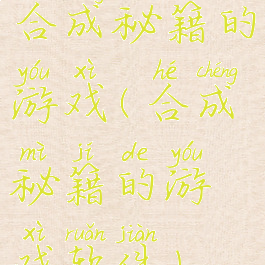 合成秘籍的
yóu xì hé chéng
游戏(合成
mì jí de yóu
秘籍的游
xì ruǎn jiàn
戏软件)